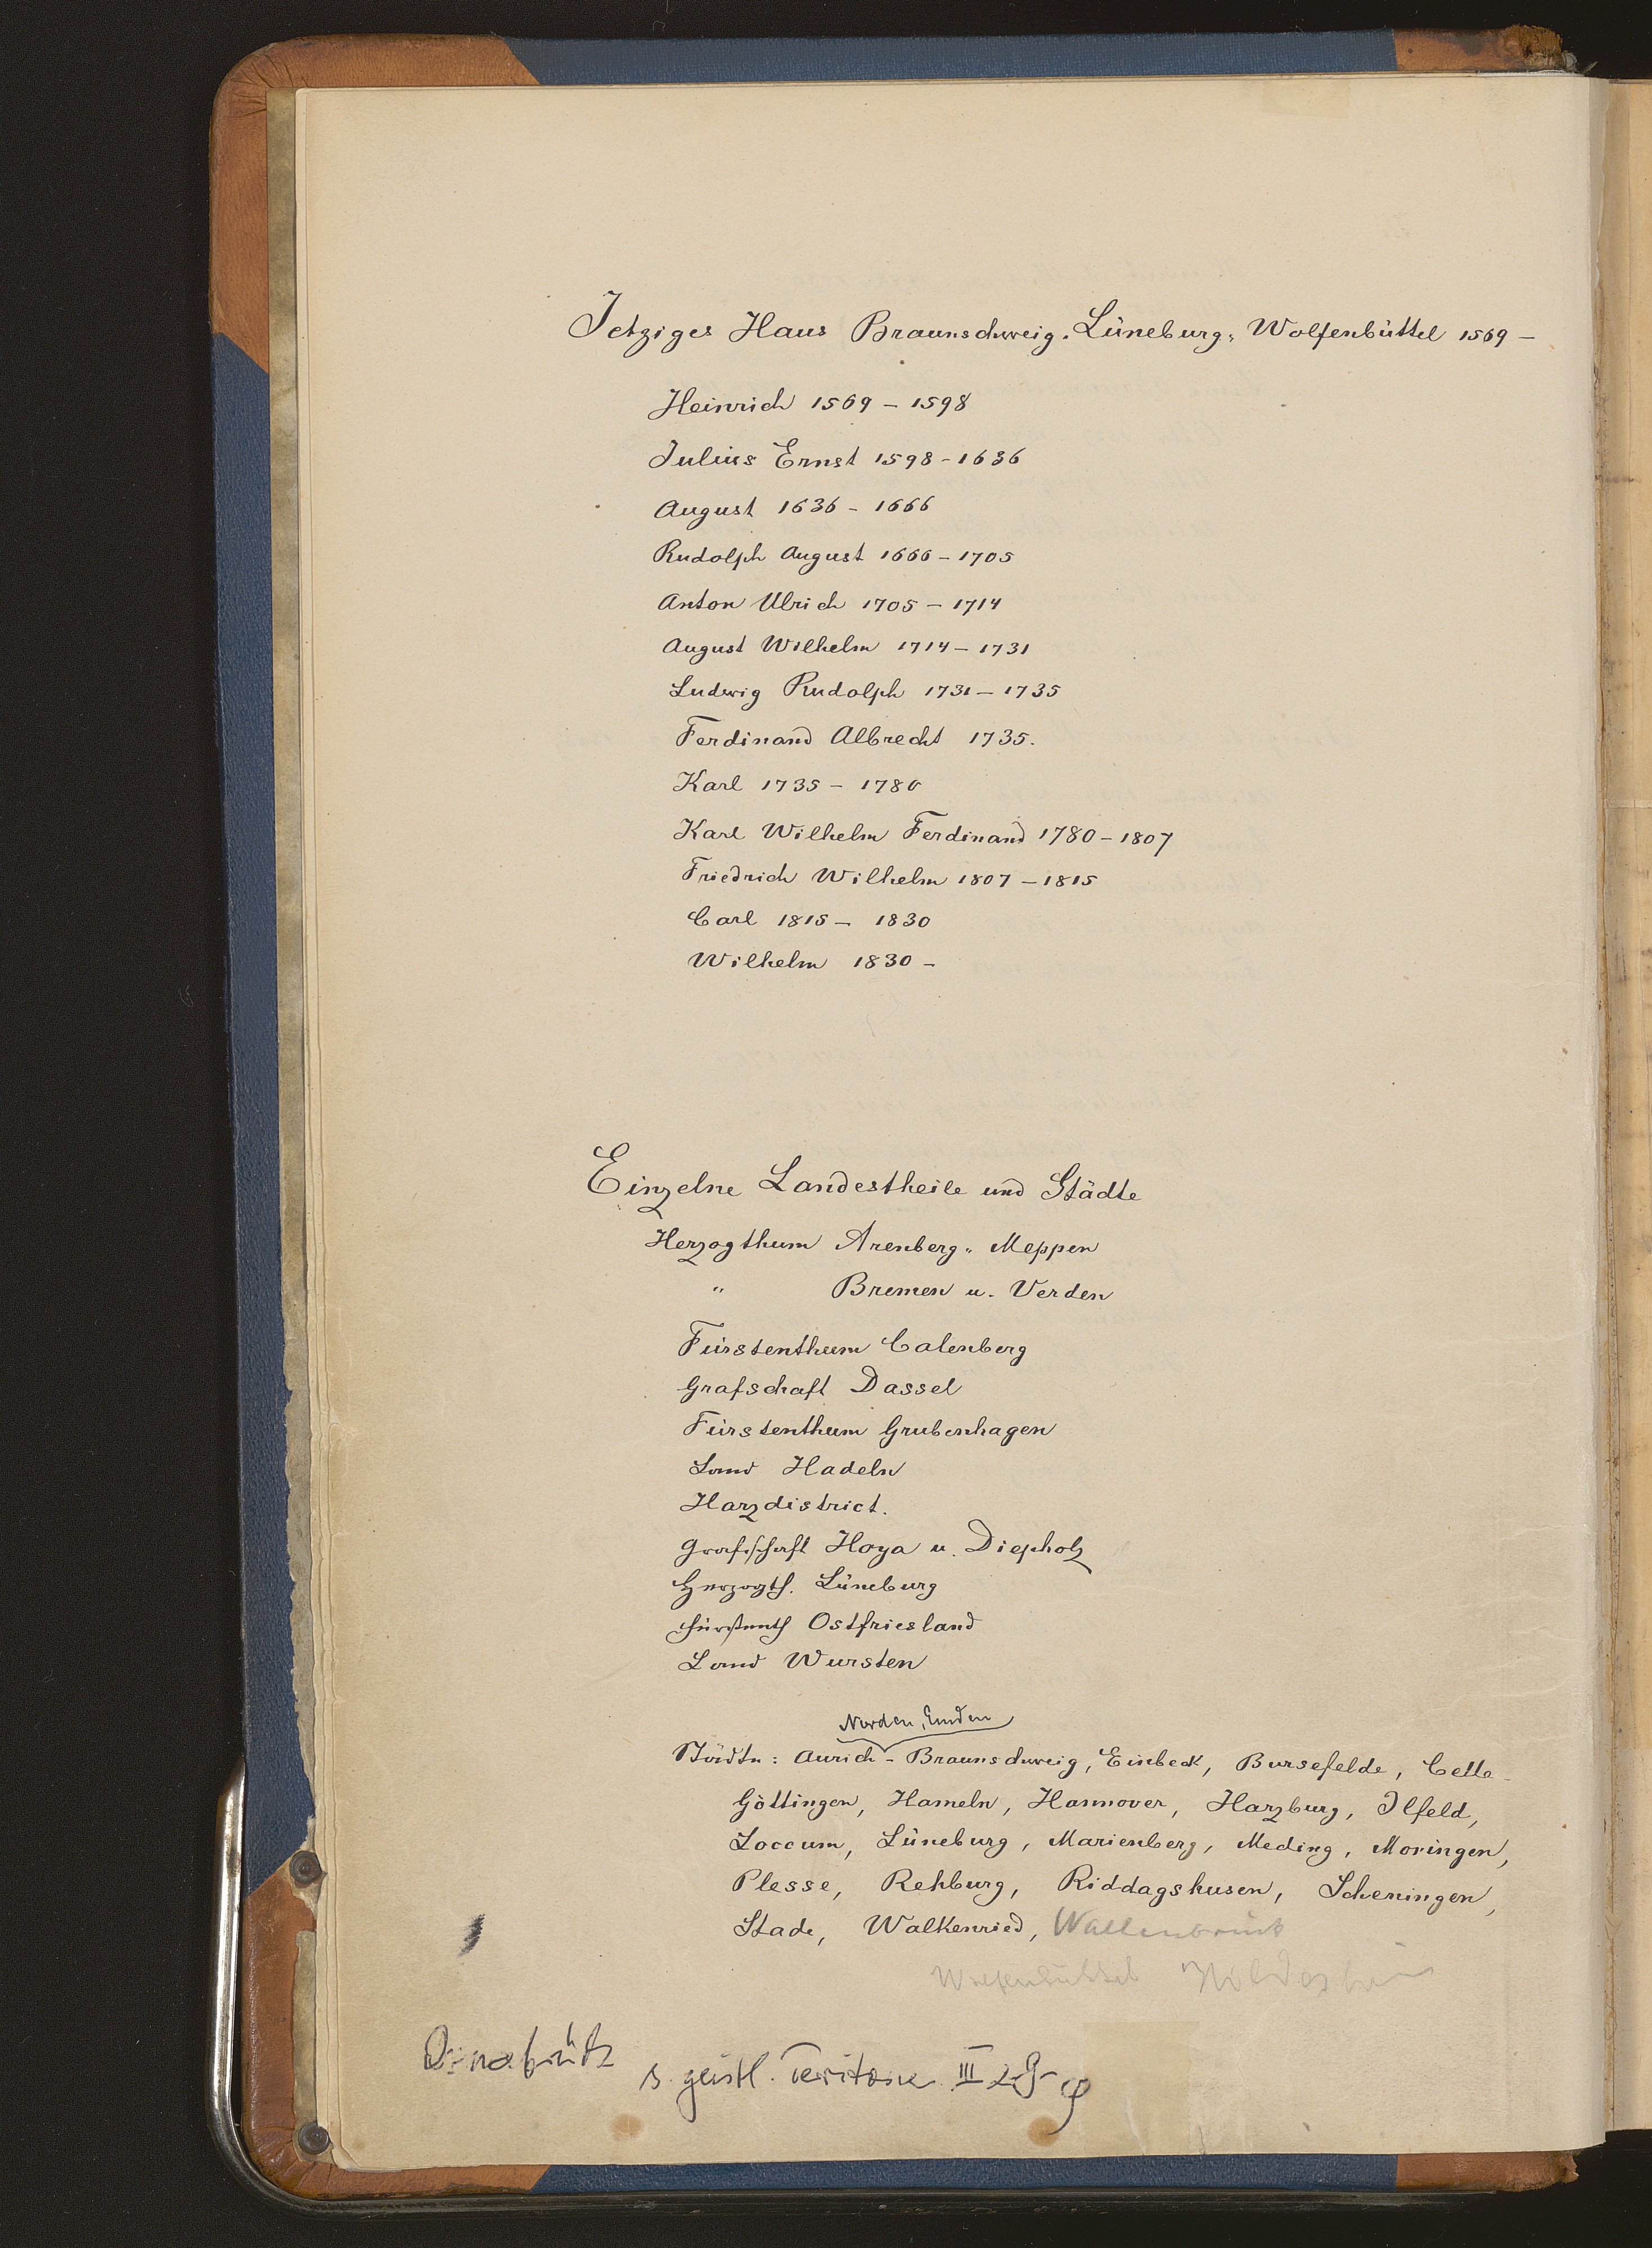 Jetziges Haus Braunschweig-Lüneburg-Wolfenbüttel 1569 -
Heinrich 1569 - 1598
Julius Ernst 1598 - 1636
August 1636 - 1666
Rudolph August 1666 - 1705
Anton Ulrich 1705 - 1714
August Wilhelm 1714 - 1731
Ludwig Rudolph 1731 - 1735
Ferdinand Albrecht 1735.
Karl 1735 - 1780
Karl Wilhelm Ferdinand 1780 - 1807
Friedrich Wilhelm 1807 - 1815
Carl 1815 - 1830
Wilhelm 1830 -
Einzelne Landestheile und Städte
Herzogthum Arenberg-Meppen
" Bremen u. Verden
Fürstenthum Calenberg
Grafschaft Dassel
Fürstenthum Grubenhagen
Land Hadeln
Harzdistrict.
Grafschaft Hoya u. Diepholz
Herzogth. Lüneburg
Fürstenth Ostfriesland
Land Wursten
Norden, Emden
Städte: Aurich - Braunschweig, Einbeck, Bursefelde, Celle
Göttingen, Hameln, Hannover, Harzburg, Ilfeld,
Loccum, Lüneburg, Marienberg, Meding, Moringen,
Plesse, Rehburg, Riddagshusen, Scheningen,
Stade, Walkenried, Wallenbrück
Wolfenbüttel Hildesheim
Osnabrück s. geistl. Teritorie III